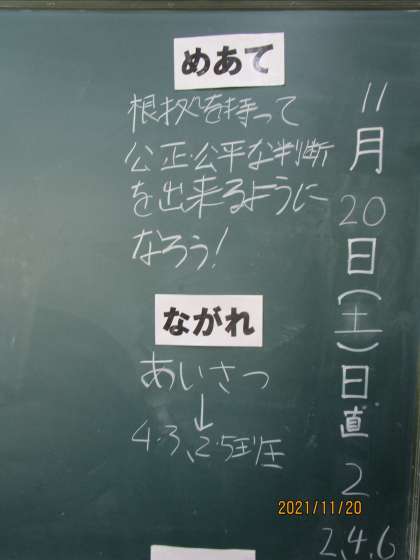 11月20日(土)日直 2
2 4 6
めあて
根拠を持って
公正・公平な判断
を出来るように
なろう!
ながれ
あいさつ
↓
2021/11/20